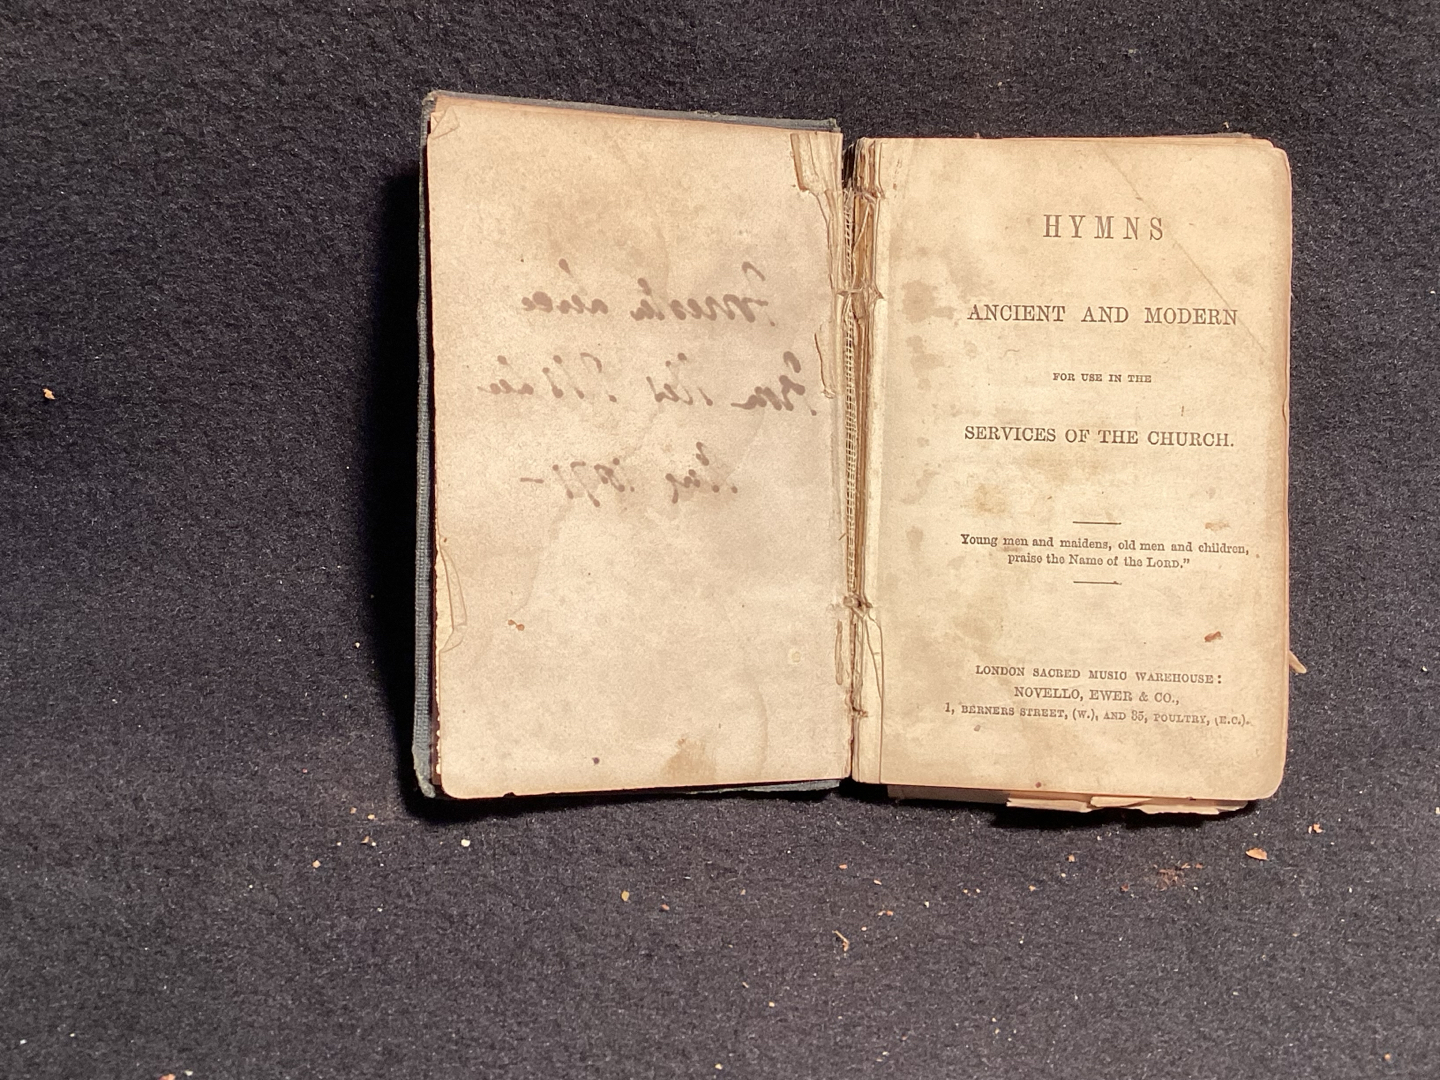 1871 -
HYMNS
ANCIENT AND MODERN
FOR USE IN THE
SERVICES OF THE CHURCH.
Young men and maidens, old men and children,
praise the Name of the LORD."
LONDON SACRED MUSIC WAREHOUSE:
NOVELLO, EWER & CO.,
1, BERNERS STREET, (W.), AND 35, POULTRY, (E.C.).